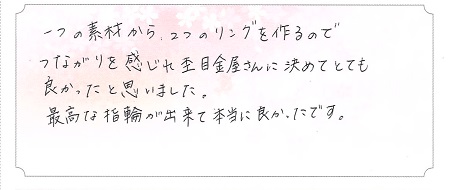 一つの素材から、2つのリングを作るので
つながりを感じれ杢目金屋さんに決めてとても
良かったと思いました。
最高な指輪が出来て本当に良かったです。